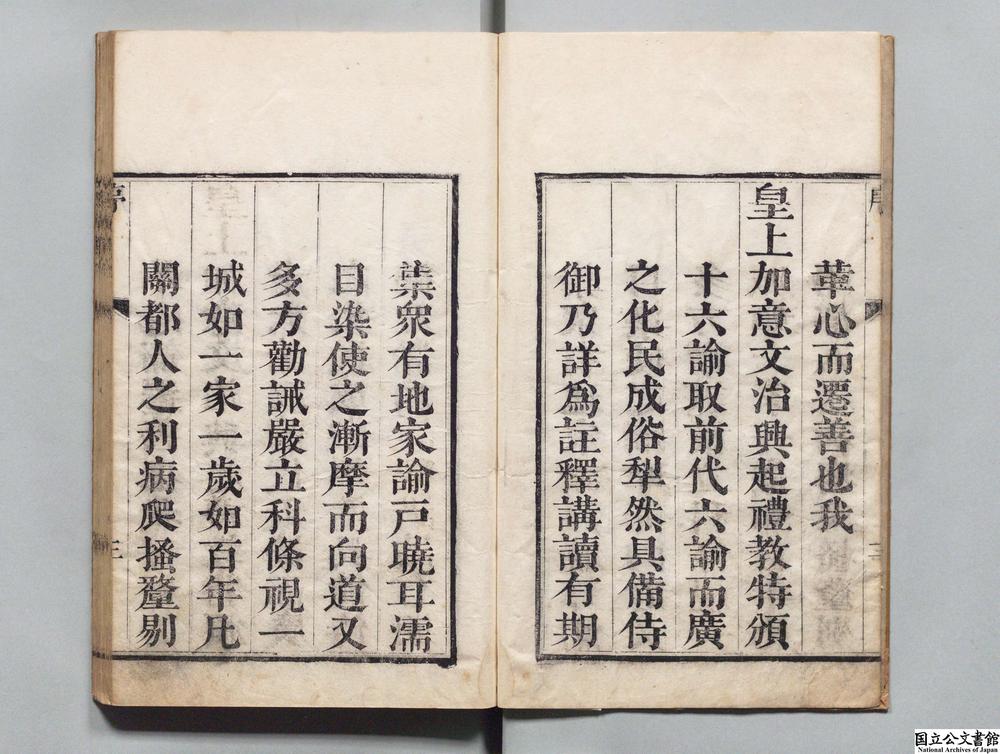 序
三
革心而遷善也我
皇上加意文治興起禮教特頒
十六諭取前代六諭而廣
之化民成俗犁然具備侍
御乃詳爲註釋講讀有期
葉衆有地家諭戸曉耳濡
目染使之漸摩而向道又
多方勸誡嚴立科條視一
城如一家一歲如百年凡
關都人之利病爬搔釐剔
序
三
国立公文書館
National Archives of Japan